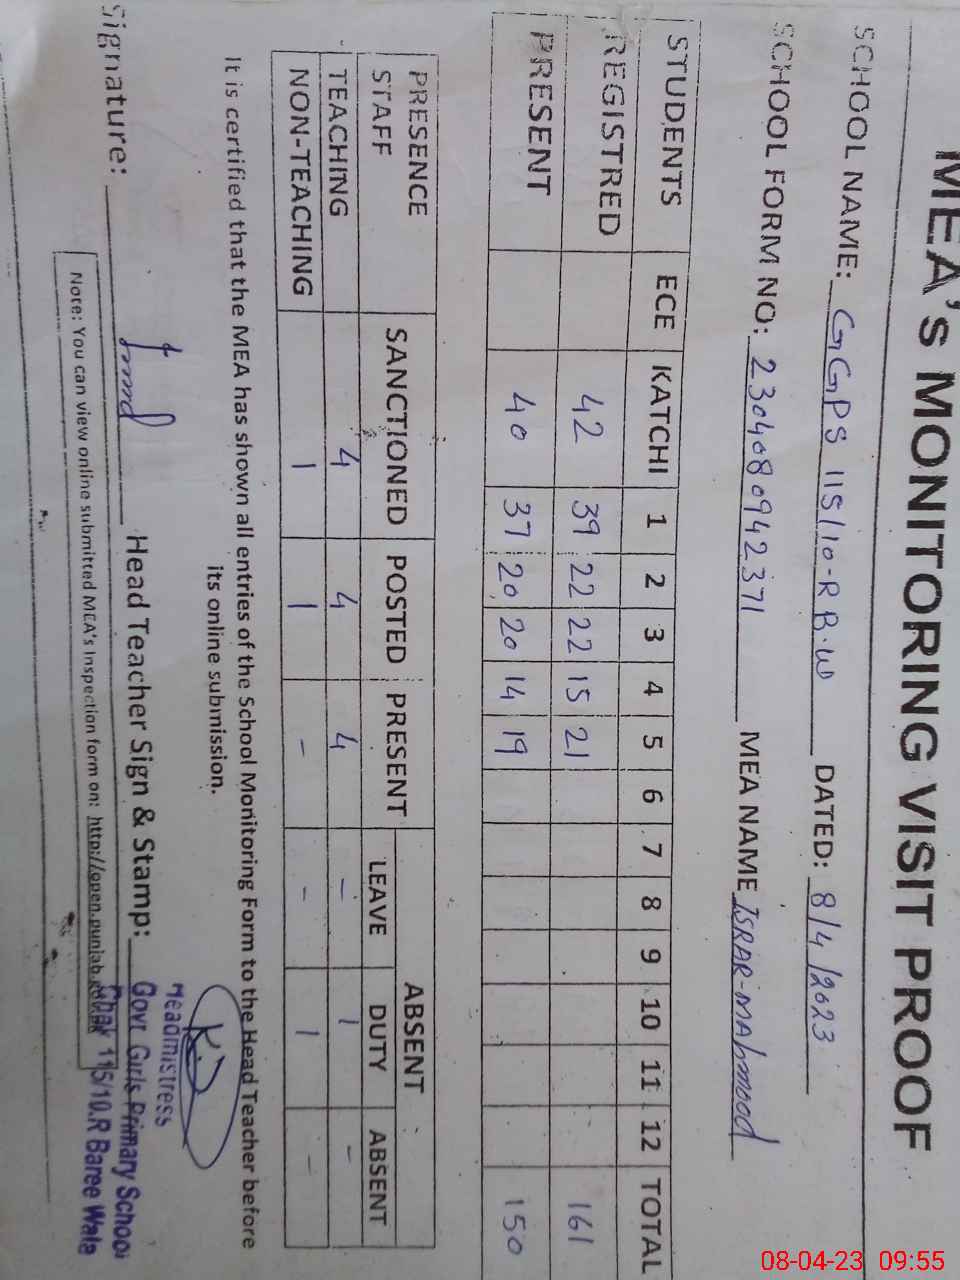 MEA's MONITORING VISIT PROOF
SCHOOL NAME: GGPS 115/10-R B.W DATED: 8/4/2023
SCHOOL FORM NO: 2304080942371 MEA NAME ISRAR-mAhmood
STUDENTS ECE KATCHI 1 2 3 4 5 6 7 8 9 10 11 12 TOTAL
REGISTRED 42 39 22 22 15 21 161
PRESENT 40 37 20 20 14 19 150
PRESENCE STAFF SANCTIONED POSTED PRESENT ABSENT
LEAVE DUTY ABSENT
TEACHING 4 4 4 - 1 -
NON-TEACHING 1 1 - - 1 -
It is certified that the MEA has shown all entries of the School Monitoring Form to the Head Teacher before
its online submission.
Signature: Head Teacher Sign & Stamp:
Headmistress
Govt. Girls Primary School
Chak 115/10.R Baree Wala
Note: You can view online submitted MEA's Inspection form on: http://open.punjab.gov.pk
08-04-23 09:55